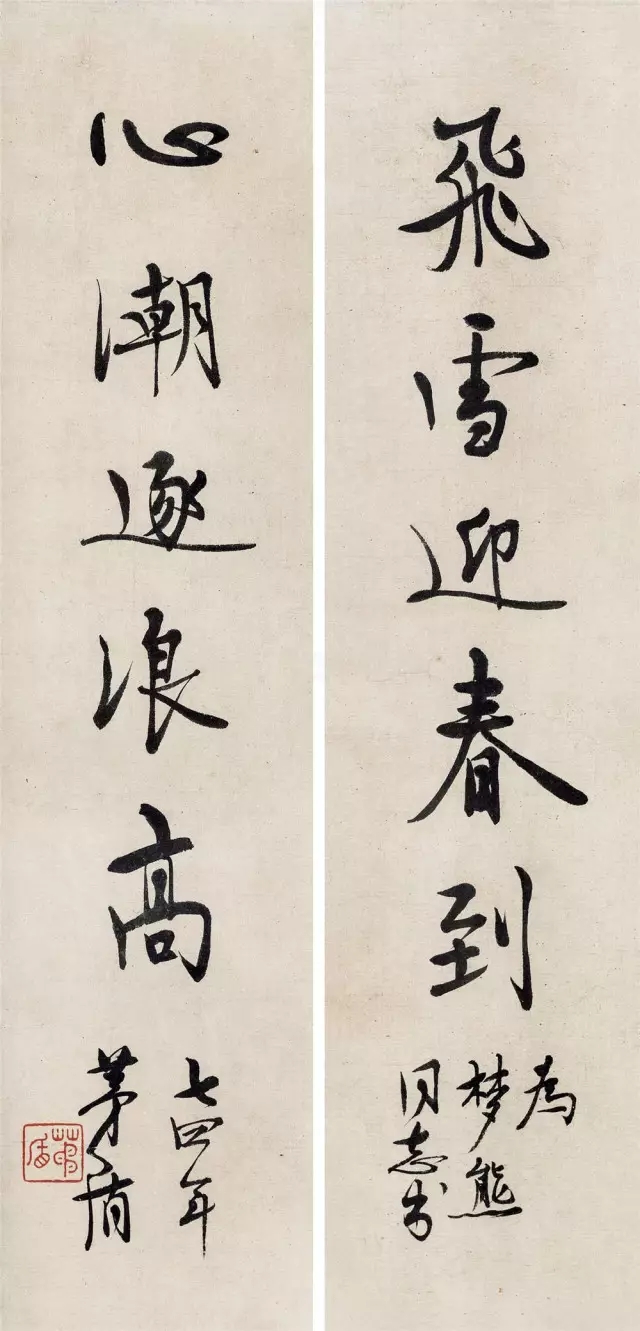 飛雪迎春到
為
梦熊
同志书
心潮逐浪高
七四年
茅盾
茅盾